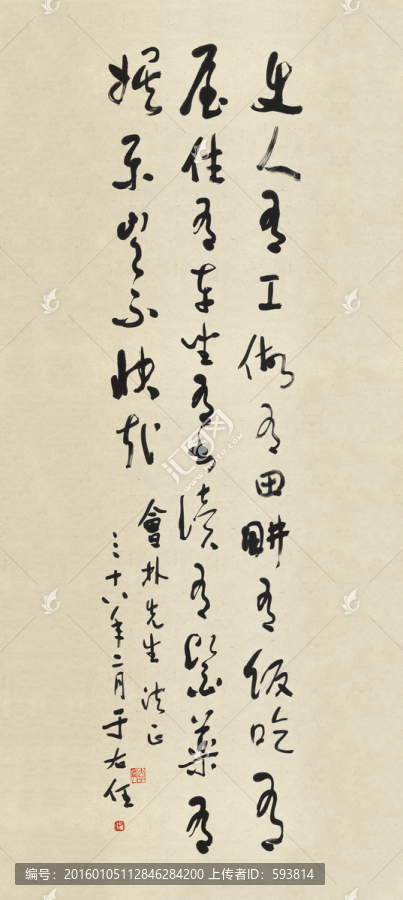 使人有工做有田耕有飯吃有
屋住有車坐有書讀有醫藥有
娛樂豈不快哉
會朴先生 法正
三十八年二月于右任
汇图网
编号：20160105112846284200 上传者ID：593814